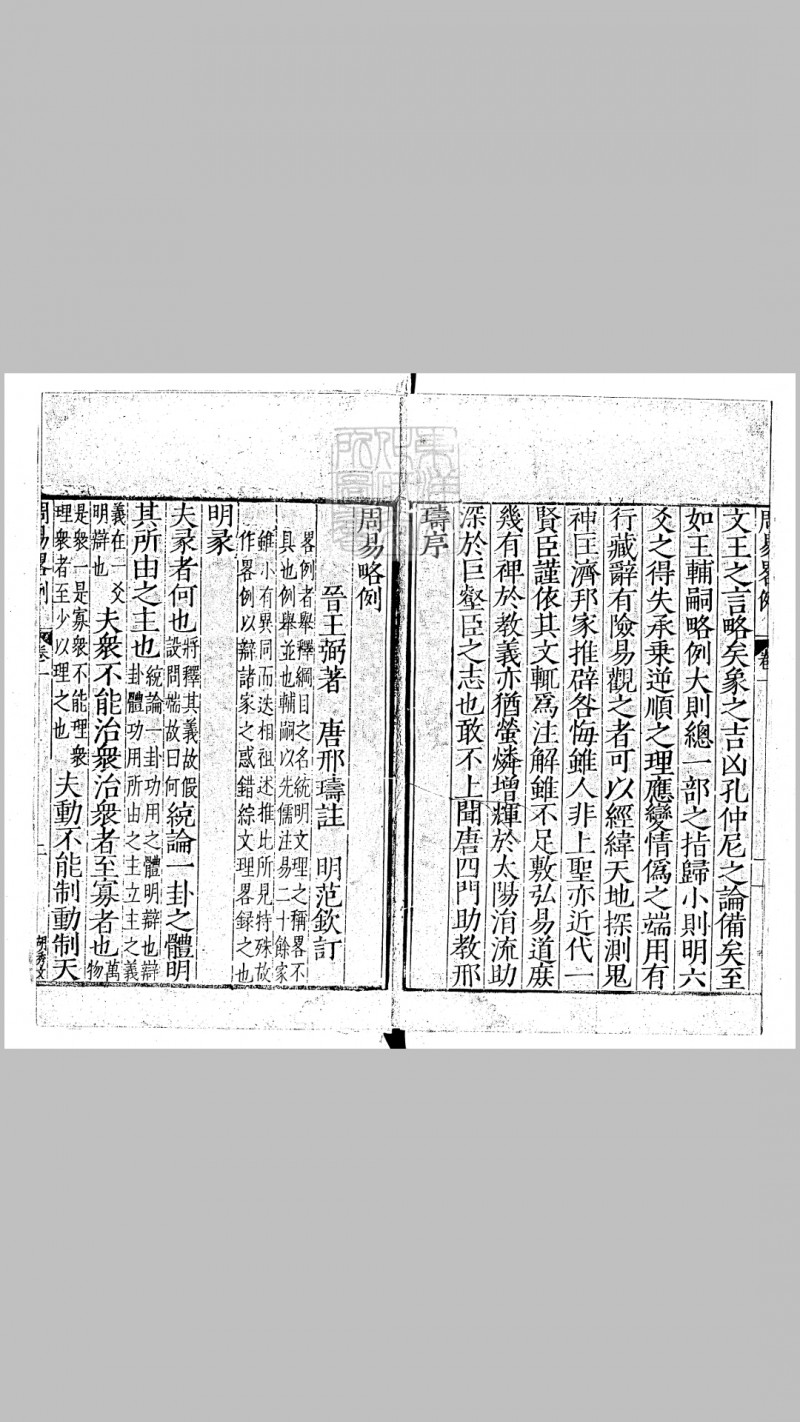 周易畧例 卷一
文王之言略矣象之吉凶孔仲尼之論備矣至
如王輔嗣略例大則總一部之指歸小則明六
爻之得失承乗逆順之理應變情僞之端用有
行藏辭有險易觀之者可以經緯天地探測鬼
神匡濟邦家推辟咎悔雖人非上聖亦近代一
賢臣謹依其文輒爲注解雖不足敷弘易道庶
幾有裨於教義亦猶螢燐增輝於太陽涓流助
深於巨壑臣之志也敢不上聞唐四門助教邢
璹序
周易略例
晉王弼著 唐邢璹註 明范欽訂
畧例者舉釋綱目之名統明文理之稱畧不
具也例舉並也輔嗣以先儒注易二十餘家
雖小有異同而迭相祖述推比所見特殊故
作畧例以辯諸家之惑錯綜文理畧録之也
明彖
夫彖者何也將釋其義故假設問端故曰何統論一卦之體明
其所由之主也統論一卦功用之體明辯也辯卦體功用所由之主立主之義
義在一爻明辯也夫衆不能治衆治衆者至寡者也萬物
是衆一是寡衆不能理衆理衆者至少以理之也夫動不能制動制天
周易畧例 卷一 二